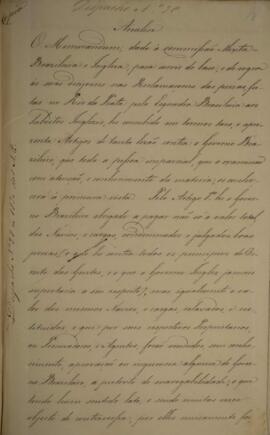 Despacho Nº 38
Analise
O Memorandum, dado á Commissão Mixta
Brazileira e Ingleza, para servir de base, e de regra
ás suas decizoens nas Reclamaçoens das prezas fei-
tas no Rio da Prata pela Esquadra Brazileira aos
Subditos Inglezes, he concebido em termos taes, e apre-
zenta Artigos de tanta lezão contra o Governo Bra-
zileiro, que toda a pessoa imparcial, que o examinar
com attenção, e conhecimento da materia, os conhe-
cerá á primeira vista. Pelo Artigo 1º he o Gover-
no Brazileiro obrigado a pagar não só o valor total
dos Navios, e cargas, condemnados e julgados boas
prezas, (o que he contra todos os principios de Di-
reito das Gentes, e o que o Governo Inglez jamais
supportaria a seu respeito), mas igualmente o va-
lor dos mesmos Navios, e cargas, relaxados e res-
tituidos, e que por seus respectivos Proprietarios,
ou Procuradores, e Agentes, foram vendidos, sem conhe-
cimento, approvação ou ingerencia alguma do Gover-
no Brazileiro, a pretexto de innavegabilidade; o que
tendo lucro sentido lato, e sendo muitas vezes
objecto de controversia, por elles unicamente foi